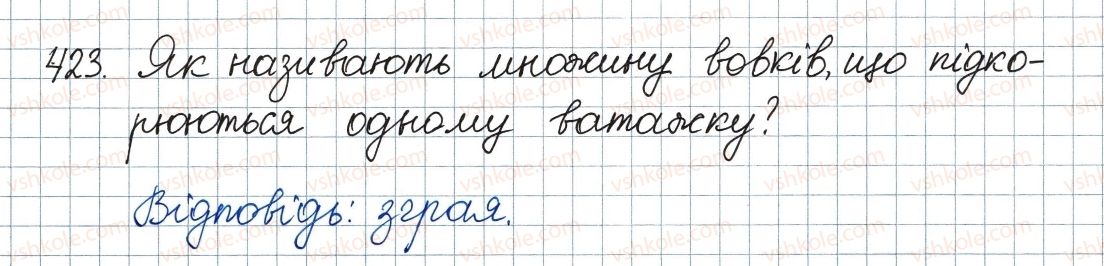 423. Як називають множину вовків, що підко-
рюються одному ватажку?
Відповідь: зграя.